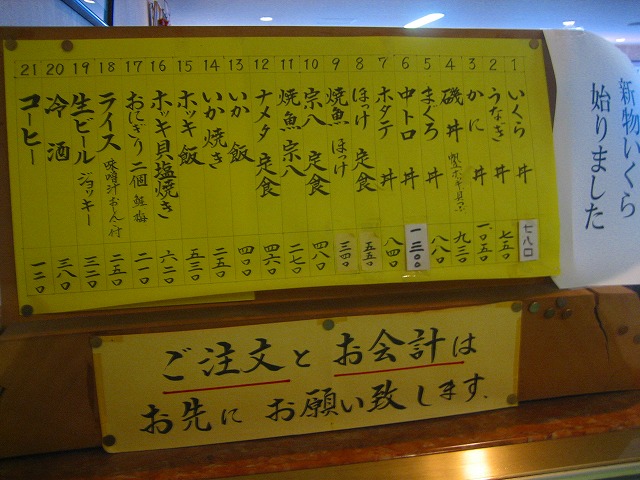 新物いくら
始りました
1 いくら丼 七八〇
2 うなぎ丼 七五〇
3 かに丼 一、〇五〇
4 磯丼 九三〇
5 まぐろ丼 八八〇
6 中トロ丼 一三〇〇
7 ホタテ丼 八四〇
8 ほっけ定食 五五〇
9 焼魚ほっけ 三四〇
10 宗八定食 四八〇
11 焼魚宗八 二七〇
12 ナメタ定食 四六〇
13 いか飯 四〇〇
14 いか焼き 二五〇
15 ホッキ飯 五三〇
16 ホッキ貝塩焼き 六二〇
17 おにぎり二個 鮭梅 二一〇
18 ライス 味噌汁おしんこ付 二五〇
19 生ビール ジョッキー 三二〇
20 冷酒 三八〇
21 コーヒー 一二〇
ご注文とお会計は
お先にお願い致します.